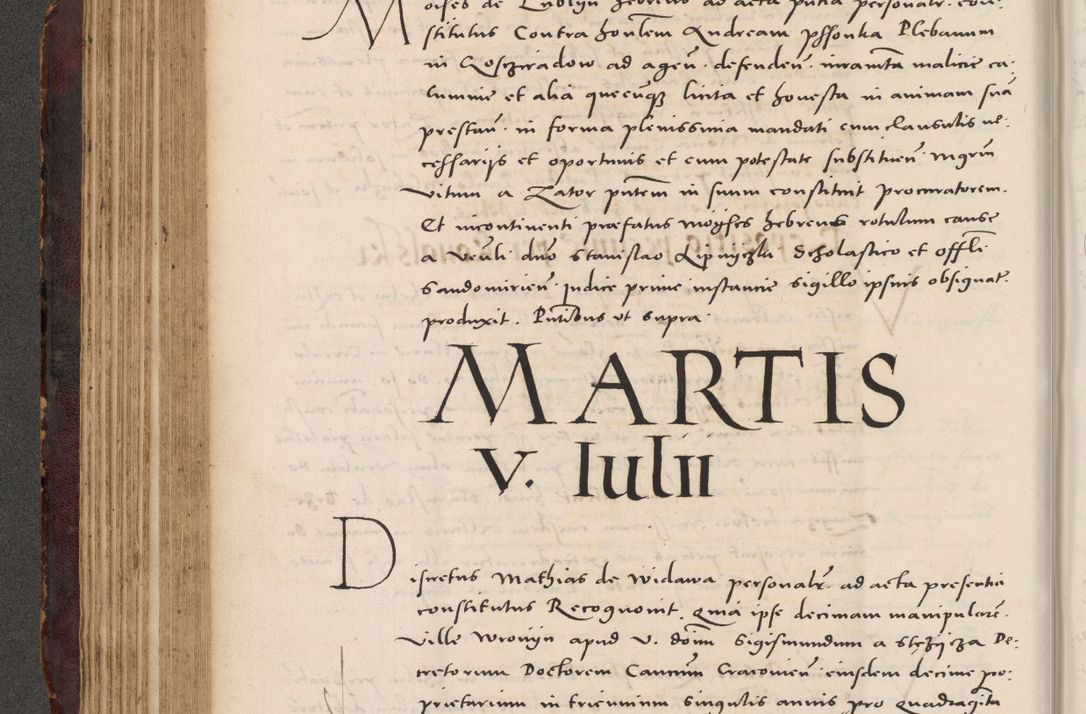 Moises de Lublyn hebreus ad acta pntia personalr. con-
stitutus Contra honlem Andream pssonka Plebanum
in Goschradow ad agen. defenden. iuramta malicie ca-
lumnie et alia quecunqz licita et honesta in animam sua
prestan. in forma plenissima mandati cum clausulis ne-
cessarijs et oportunis et cum potestate substituen. mgrm
vitum a Zator pntem in suum constituit procuratorem.
Et incontinenti praefatus moyses hebreus rotulum cause
a venli dno Stanislao Lipnyczki Scholastico et offli
Sandomirien. Judice prime instancie sigillo ipsius obsignat.
produxit. Pntibus vt supra.
MARTIS
V. Iulii
Discretus Mathias de Widawa personalr. ad acta presentia
constitutus Recognouit. quia ipse decimam manipularem.
ville wrovyn apud V. dnm Sigismundum a stezicza De-
cretorum Doctorem Canonn Cracouien. eiusdem decime pro-
prietarium in triennium singulis annis pro quadraginta